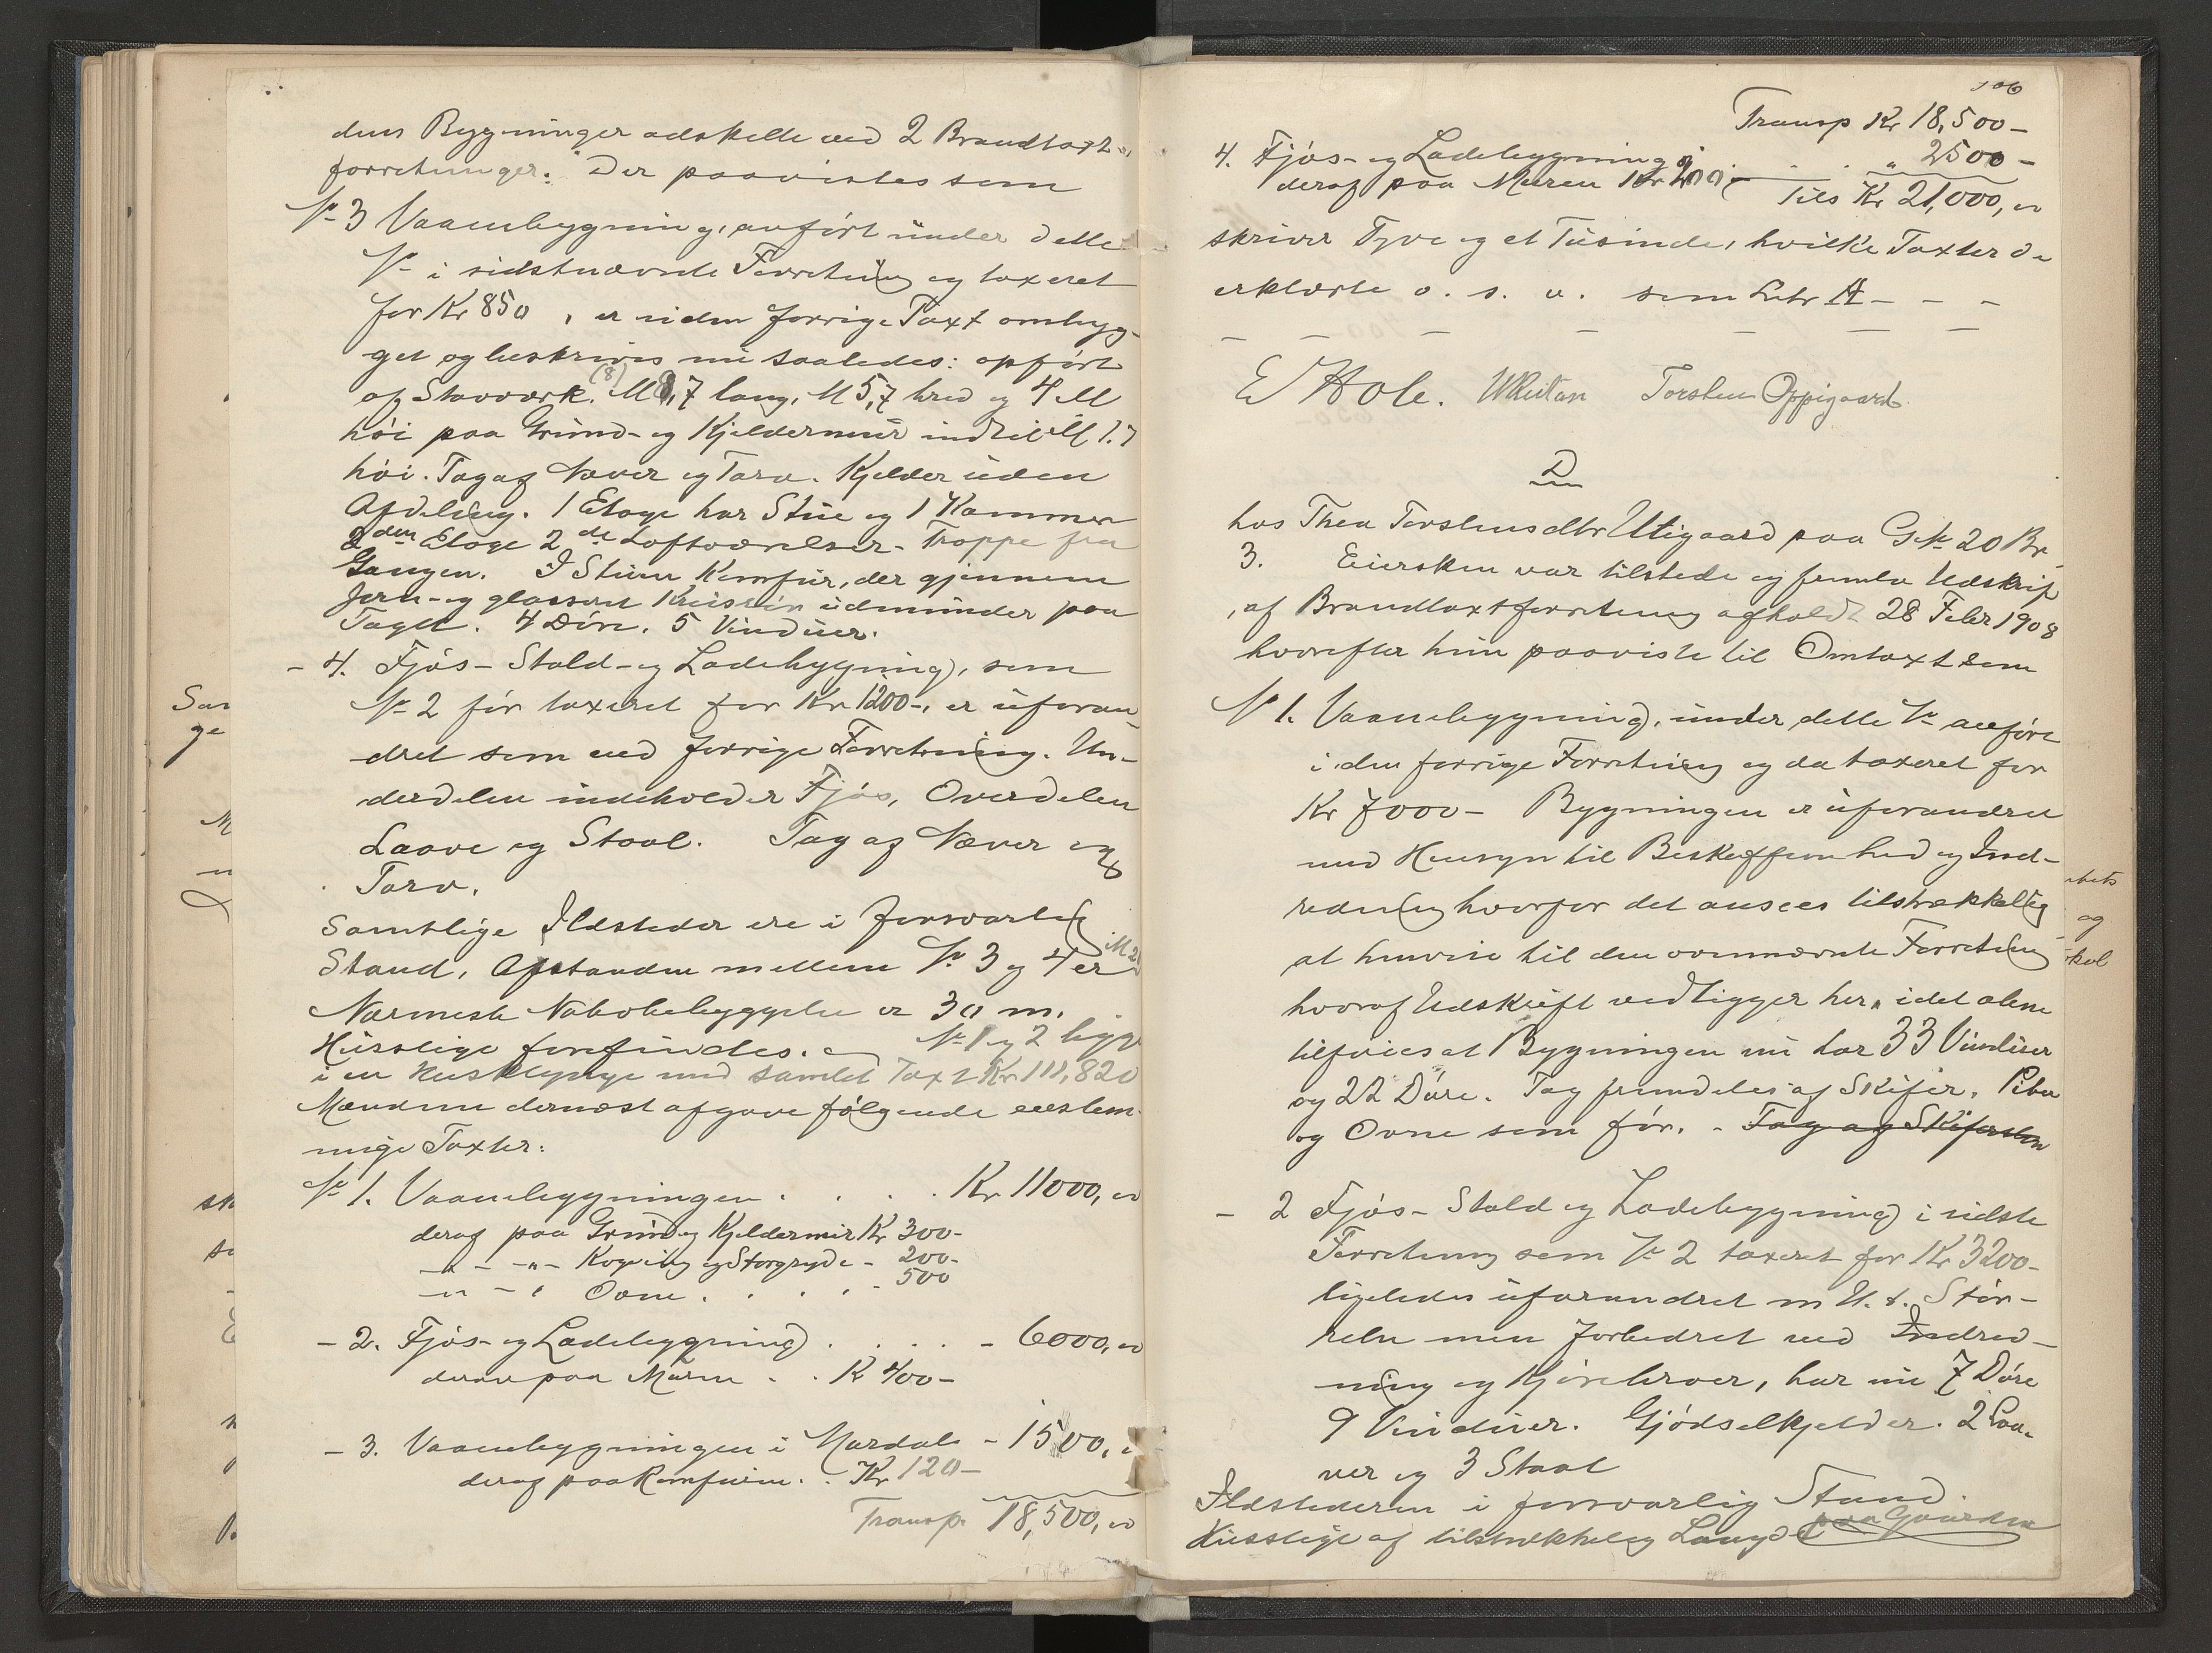 dens Bygninger adskelte ved 2 Brandtaxt-
forretninger. Der paavistes som
No 3 Vaanebygning, anført under dette
No i sidstnævnte Forretning og taxeret
for Kr 850, er siden forrige Taxt ombyg-
get og beskrives nu saaledes: opført
af Stavværk. (8) M 8,7 lang, M 5,7 bred og 4 M
høi paa Grund- og Kjeldermur indtil M 1.7
høi. Tag af Næver og Torv. Kjelder uden
Afdeling. 1 Etage har Stue og 1 Kammer
2den Etage 2de Loftværelser - Trappe fra
Gangen. I Stuen Komfur, der gjennem
Jern- og glasseret Krusrør udmunder paa
Taget. 4 Döre. 5 Vinduer.
- 4. Fjøs- Stald- og Ladebygning, som
No 2 før taxeret for Kr 1200-, er uforan-
dret som ved forrige Forretning. Un-
derdelen indeholder Fjøs, Overdelen
Laave og Staal. Tag af Næver og
Torv.
Samtlige Ildsteder ere i forsvarlig
Stand, Afstanden mellem No 3 og 4 er M 2
Nærmeste Nabobebyggelse er 30 m.
Husstige forefindes. No 1 og 2 ligge
i en Husklynge med samlet Taxt Kr 111,820
Mændene dernæst afgave følgende eenstem-
mige Taxter:
No 1. Vaanebygningen . . . . Kr 11000,00
deraf paa Grund og Kjeldermur Kr 300-
-"- -"- Kogeindr og Storgryde - 200-
-"- -"- Ovne . . . . - 500
- 2. Fjøs- og Ladebygning . . . . - 6000,00
derav paa Muren . . Kr 400-
- 3. Vaanebygningen i Mardal - 1500,
deraf paa Komfuren . . Kr 120-
Transp. 18,500,00
106
Transp Kr 18,500-
4. Fjøs- og Ladebygning . . . " 2500-
deraf paa Muren Kr 200- Tils Kr 21,000,00
skriver Tyve og et Tusinde, hvilke Taxter de
erklærte o. s. v. som Litr A - - -
E Hole. Torsten Oppigaard.
D
hos Thea Torstensdtr Utigaard paa G No 20 Br
3. Eiersken var tilstede og fremla Udskrif
af Brandtaxtforretning afholdt 28 Febr 1908
hvorefter hun paaviste til Omtaxt som
No 1. Vaanebygning, under dette No anført
i den forrige Forretning og da taxeret for
Kr 7000- Bygningen er uforandret
med Hensyn til Beskaffenhed og Ind-
redning hvorfor det ansees tilstrækkelig
at henvise til den ovennævnte Forretning
hvoraf Udskrift vedligger her, idet alene
tilføies at Bygningen nu har 33 Vinduer
og 22 Døre. Tag fremdeles af Skifer. Piber
og Ovne som før. - Tag af Skifersten
- 2 Fjøs- Stald og Ladebygning i sidste
Forretning som No 2 taxeret for Kr 3200-
ligeledes uforandret m H. t. Stør-
relse men forbedret ved Indred-
ning og Kjørebroer, har nu 7 Døre
9 Vinduer. Gjødselkjelder. 2 Laa-
ver og 3 Staal
Ildstederne i forsvarlig Stand.
Husstige af tilstrækkelig Længde paa Gaarden